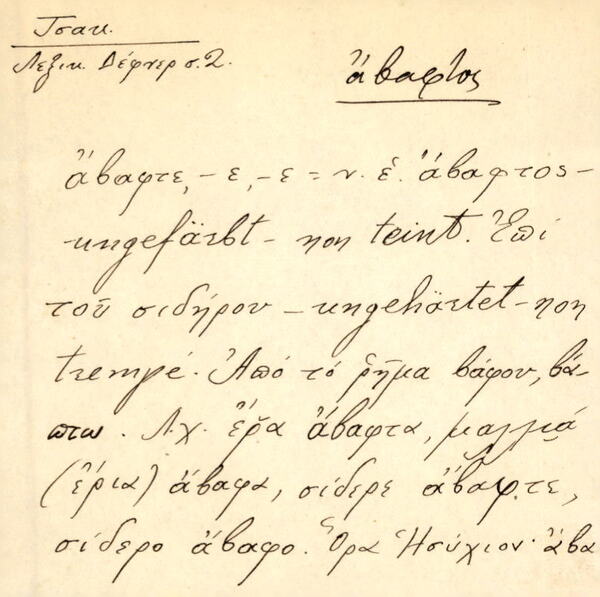 Τσακ.
Λεξικ. Δέφνερ σ. 2.
ἄβαφτος
ἄβαφτε, -ε, -ε = ν. ἑ. ἄβαφτος -
ungefärbt - non teint. Ἐπὶ
τοῦ σιδήρου - ungehärtet - non
trempé. Ἀπό τό ῥῆμα βάφου, βά-
πτω. Λ.χ. ἔρ̌α ἄβαφτα, μαλλιά
(ἔρια) ἄβαφα, σίδερε ἄβαφτε,
σίδερο ἄβαφο. Ὅρα Ἡσύχιον· ἄβα